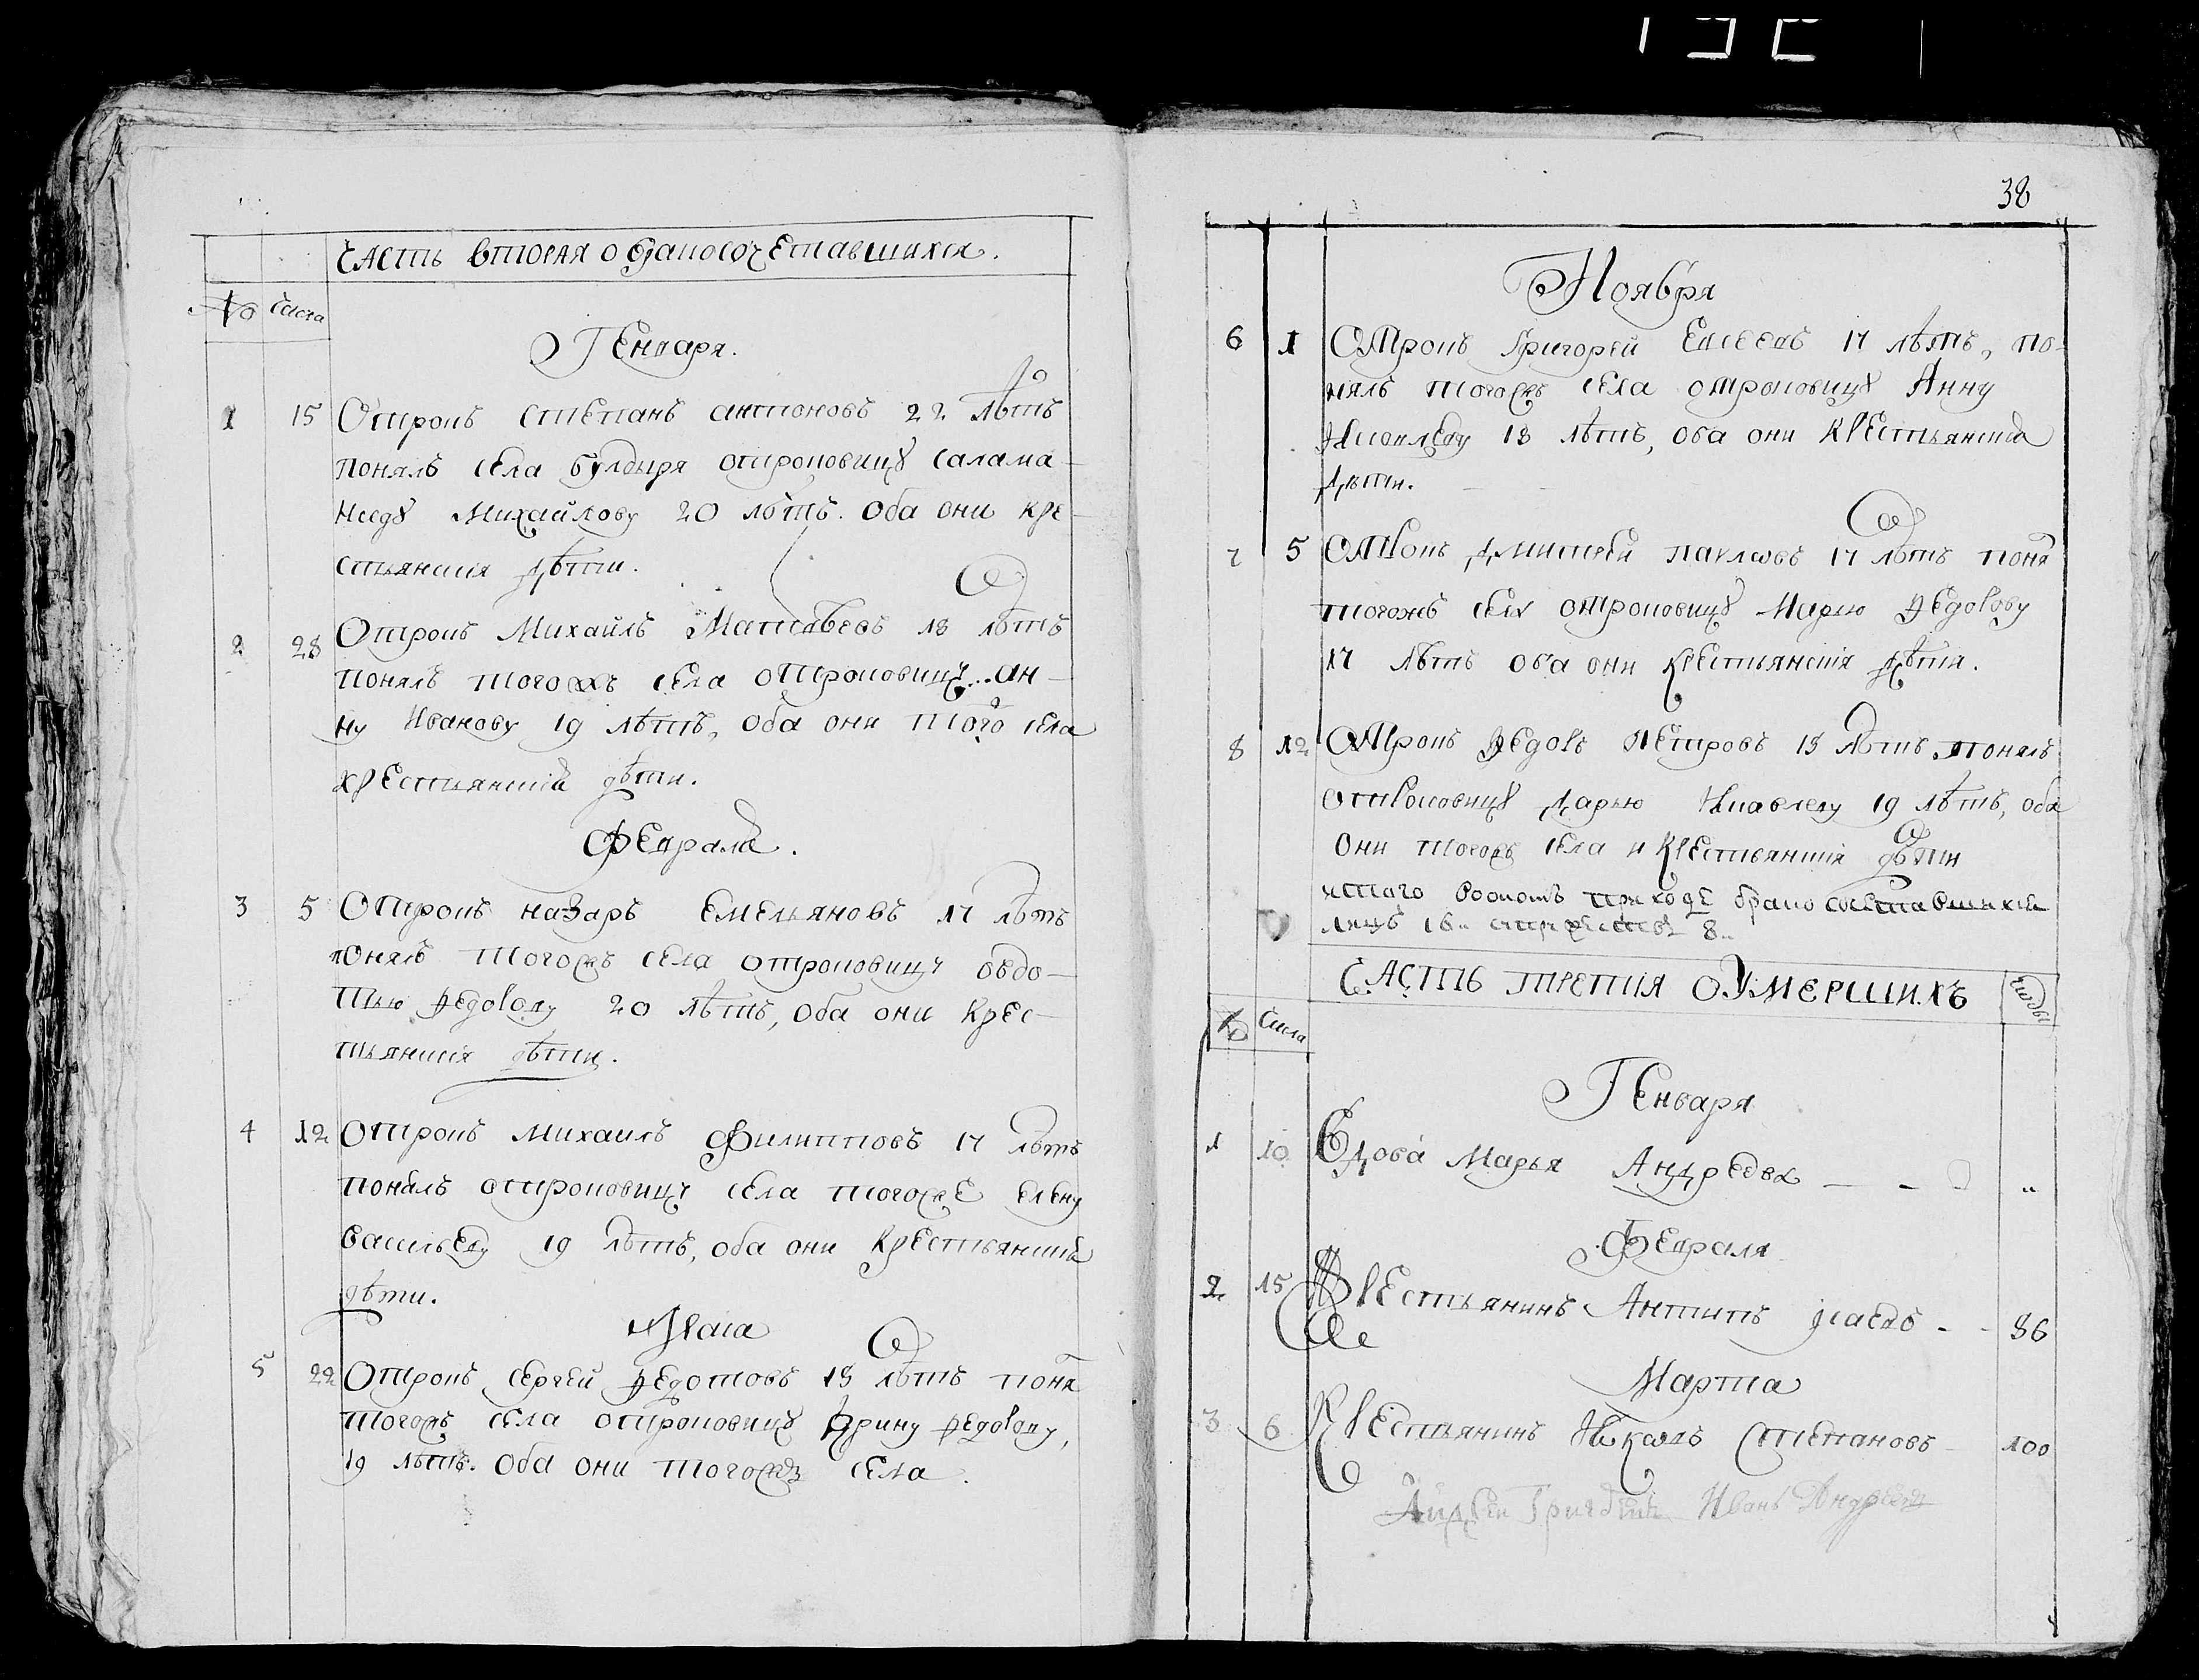 Часть вторая о бракосочетавшихся.
№ Числа
Генваря.
1 15 Отрокъ Степанъ Антоновъ 22 лѣтъ
понялъ села Булдыря отроковицу Салама-
ниду Михайлову 20 лѣтъ. оба они кре-
стьянскія дѣти.
2 28 Отрокъ Михайлъ Матвѣевъ 18 лѣтъ
понялъ тогожъ села отроковицу Ан-
ну Иванову 19 лѣтъ, оба они того села
крестьянскія дѣти.
Февраля.
3 5 Отрокъ Назаръ Емельяновъ 17 лѣтъ
понялъ тогожъ села отроковицу Овдо-
тью Федорову 20 лѣтъ, оба они крес-
тьянскія дѣти.
4 12 Отрокъ Михаилъ Филипповъ 17 лѣтъ
понялъ отроковицу села тогоже Елену
Васильеву 19 лѣтъ, оба они крестьянскія
дѣти.
Маіа
5 22 Отрокъ Сергей Федотовъ 18 лѣтъ поня
тогожъ села отроковицу Ирину Федорову,
19 лѣтъ. оба они тогожъ села.
38
Ноября
6 1 Отрокъ Григорей Евсеевъ 17 лѣтъ, по-
нялъ тогожъ села отроковицу Анну
18 лѣтъ, оба они крестьянскія
дѣти.
7 5 Отрокъ Дмитрей Павловъ 17 лѣтъ поня
тогожъ села отроковицу Марью Федорову
17 лѣтъ оба они крестьянскія дѣти.
8 12 Отрокъ Федоръ Петровъ 18 лѣтъ понялъ
отроковицу Дарью 19 лѣтъ, оба
они тогожъ села и крестьянскія дѣти
итого приходе брако сочетавшихся
лицъ 16 8
Часть третия о умершихъ Годы
№ Числа
Генваря
1 10 Вдова Марья Андреева — - "
Февраля
2 15 Крестьянинъ Антипъ - - 86
Марта
3 6 Крестьянинъ Яковъ Степановъ 100
Андрей Иванъ Андреевъ